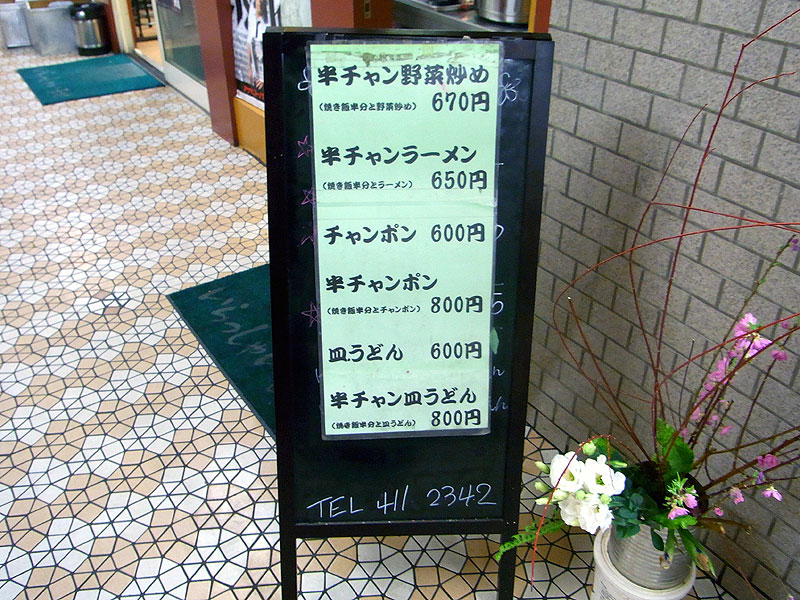 半チャン野菜炒め
(焼き飯半分と野菜炒め) 670円
半チャンラーメン
(焼き飯半分とラーメン) 650円
チャンポン 600円
半チャンポン
(焼き飯半分とチャンポン) 800円
皿うどん 600円
半チャン皿うどん
(焼き飯半分と皿うどん) 800円
TEL 411 2342